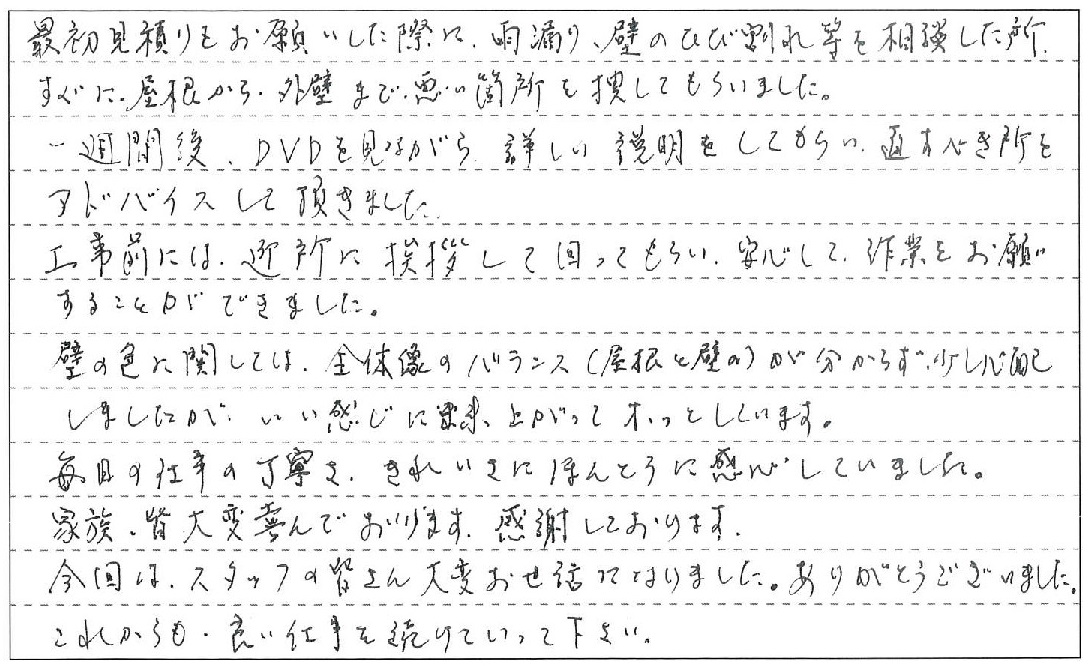 最初見積りをお願いした際に、雨漏り、壁のひび割れ等を相談した所、
すぐに、屋根から、外壁まで、悪い箇所を捜してもらいました。
一週間後、DVDを見ながら、詳しい説明をしてもらい、直すべき所を
アドバイスして頂きました。
工事前には、近所に挨拶して回ってもらい、安心して、作業をお願い
することができました。
壁の色に関しては、全体像のバランス(屋根と壁の)が分からず、少し心配
しましたが、いい感じに出来上がってホッとしています。
毎日の仕事の丁寧さ、きれいさにほんとうに感心していました。
家族、皆大変喜んでおります。感謝しております。
今回は、スタッフの皆さん大変お世話になりました。ありがとうございました。
これからも、良い仕事を続けていって下さい。